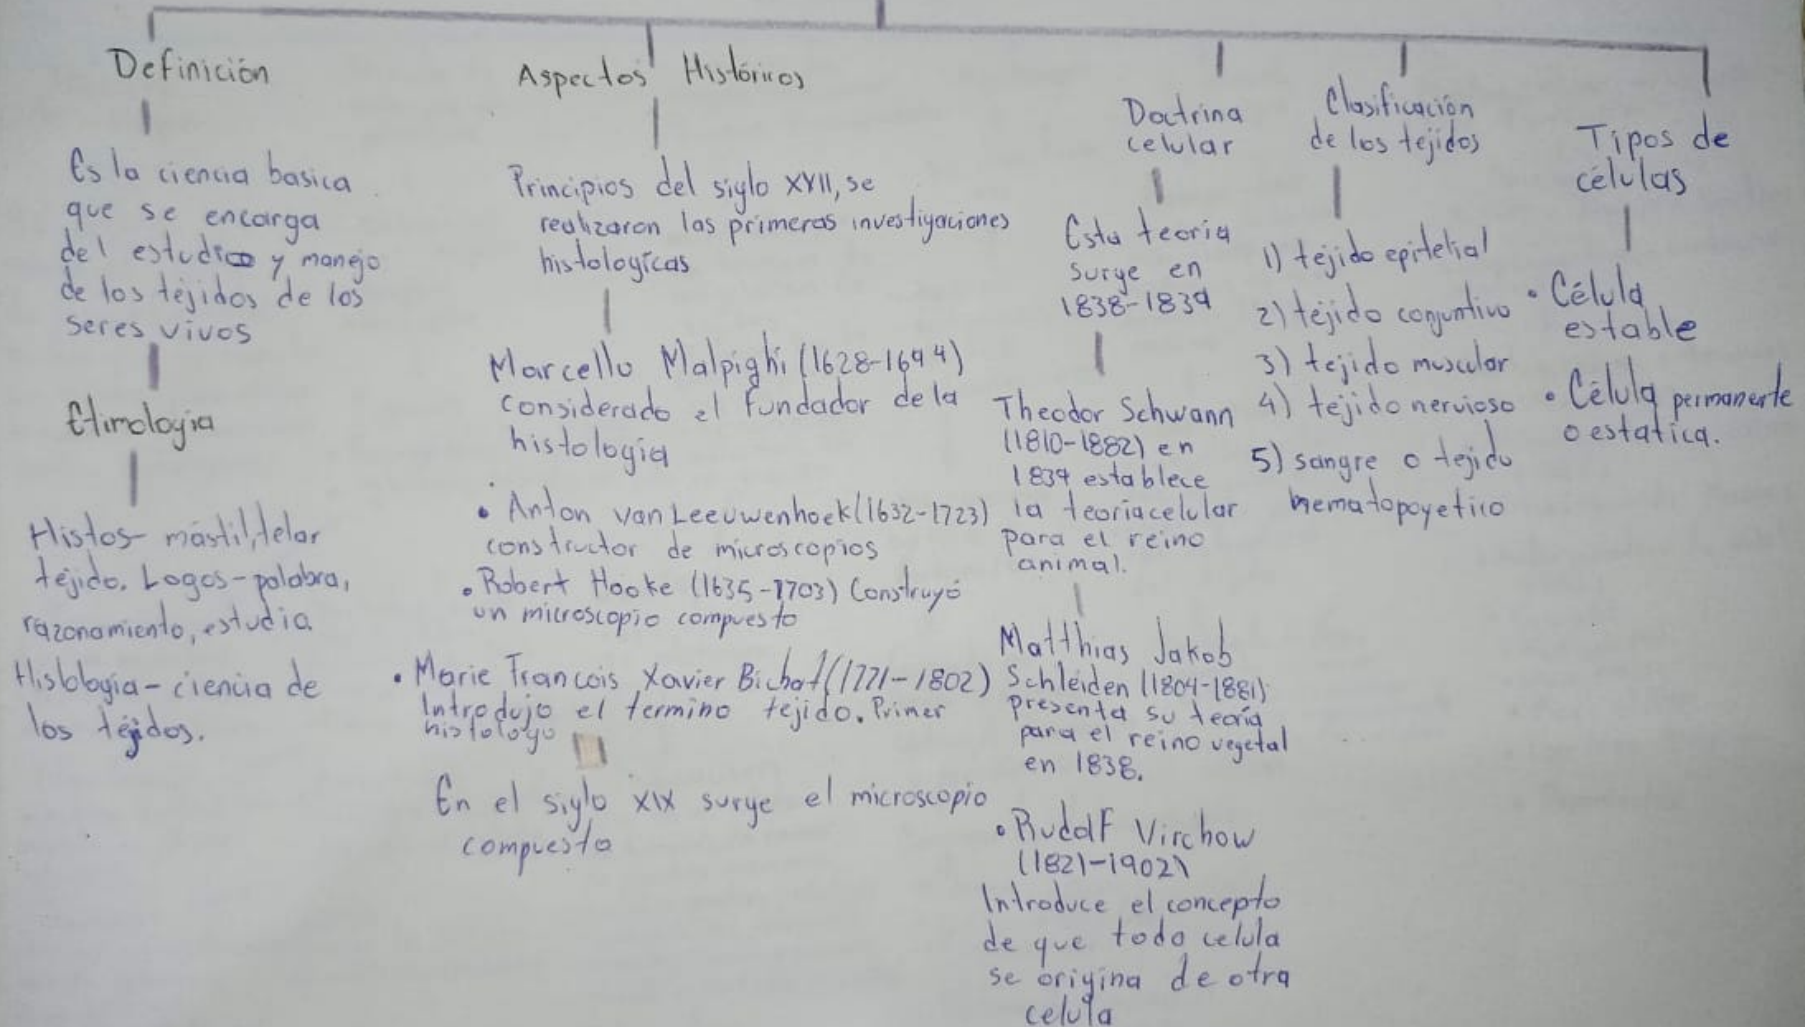 Definición
Es la ciencia basica
que se encarga
del estudio y manejo
de los tejidos de los
seres vivos
Etimología
Histos- mástil, telar
tejido. Logos-palabra,
razonamiento, estudia
Histología-ciencia de
los tejidos.
Aspectos Históricos
Principios del siglo XVII, se
realizaron las primeras investigaciones
histologícas
Marcello Malpighi (1628-1694)
considerado el fundador de la
histología
• Anton van Leeuwenhoek (1632-1723)
constructor de microscopios
• Robert Hooke (1635-1703) Construyó
un microscopio compuesto
• Marie Francois Xavier Bichat (1771-1802)
Introdujo el termino tejido. Primer
histologo
En el siglo XIX surge el microscopio
compuesto
Doctrina
celular
Esta teoría
surge en
1838-1839
Theodor Schwann
(1810-1882) en
1839 establece
la teoria celular
para el reino
animal.
Matthias Jakob
Schleiden (1804-1881)
presenta su teoría
para el reino vegetal
en 1838.
• Rudolf Virchow
(1821-1902)
Introduce el concepto
de que toda celula
se origina de otra
celula
Clasificación
de los tejidos
1) tejido epitelial
2) tejido conjuntivo
3) tejido muscular
4) tejido nervioso
5) sangre o tejido
hematopoyetico
Tipos de
células
• Célula
estable
• Célula permanente
o estatica.